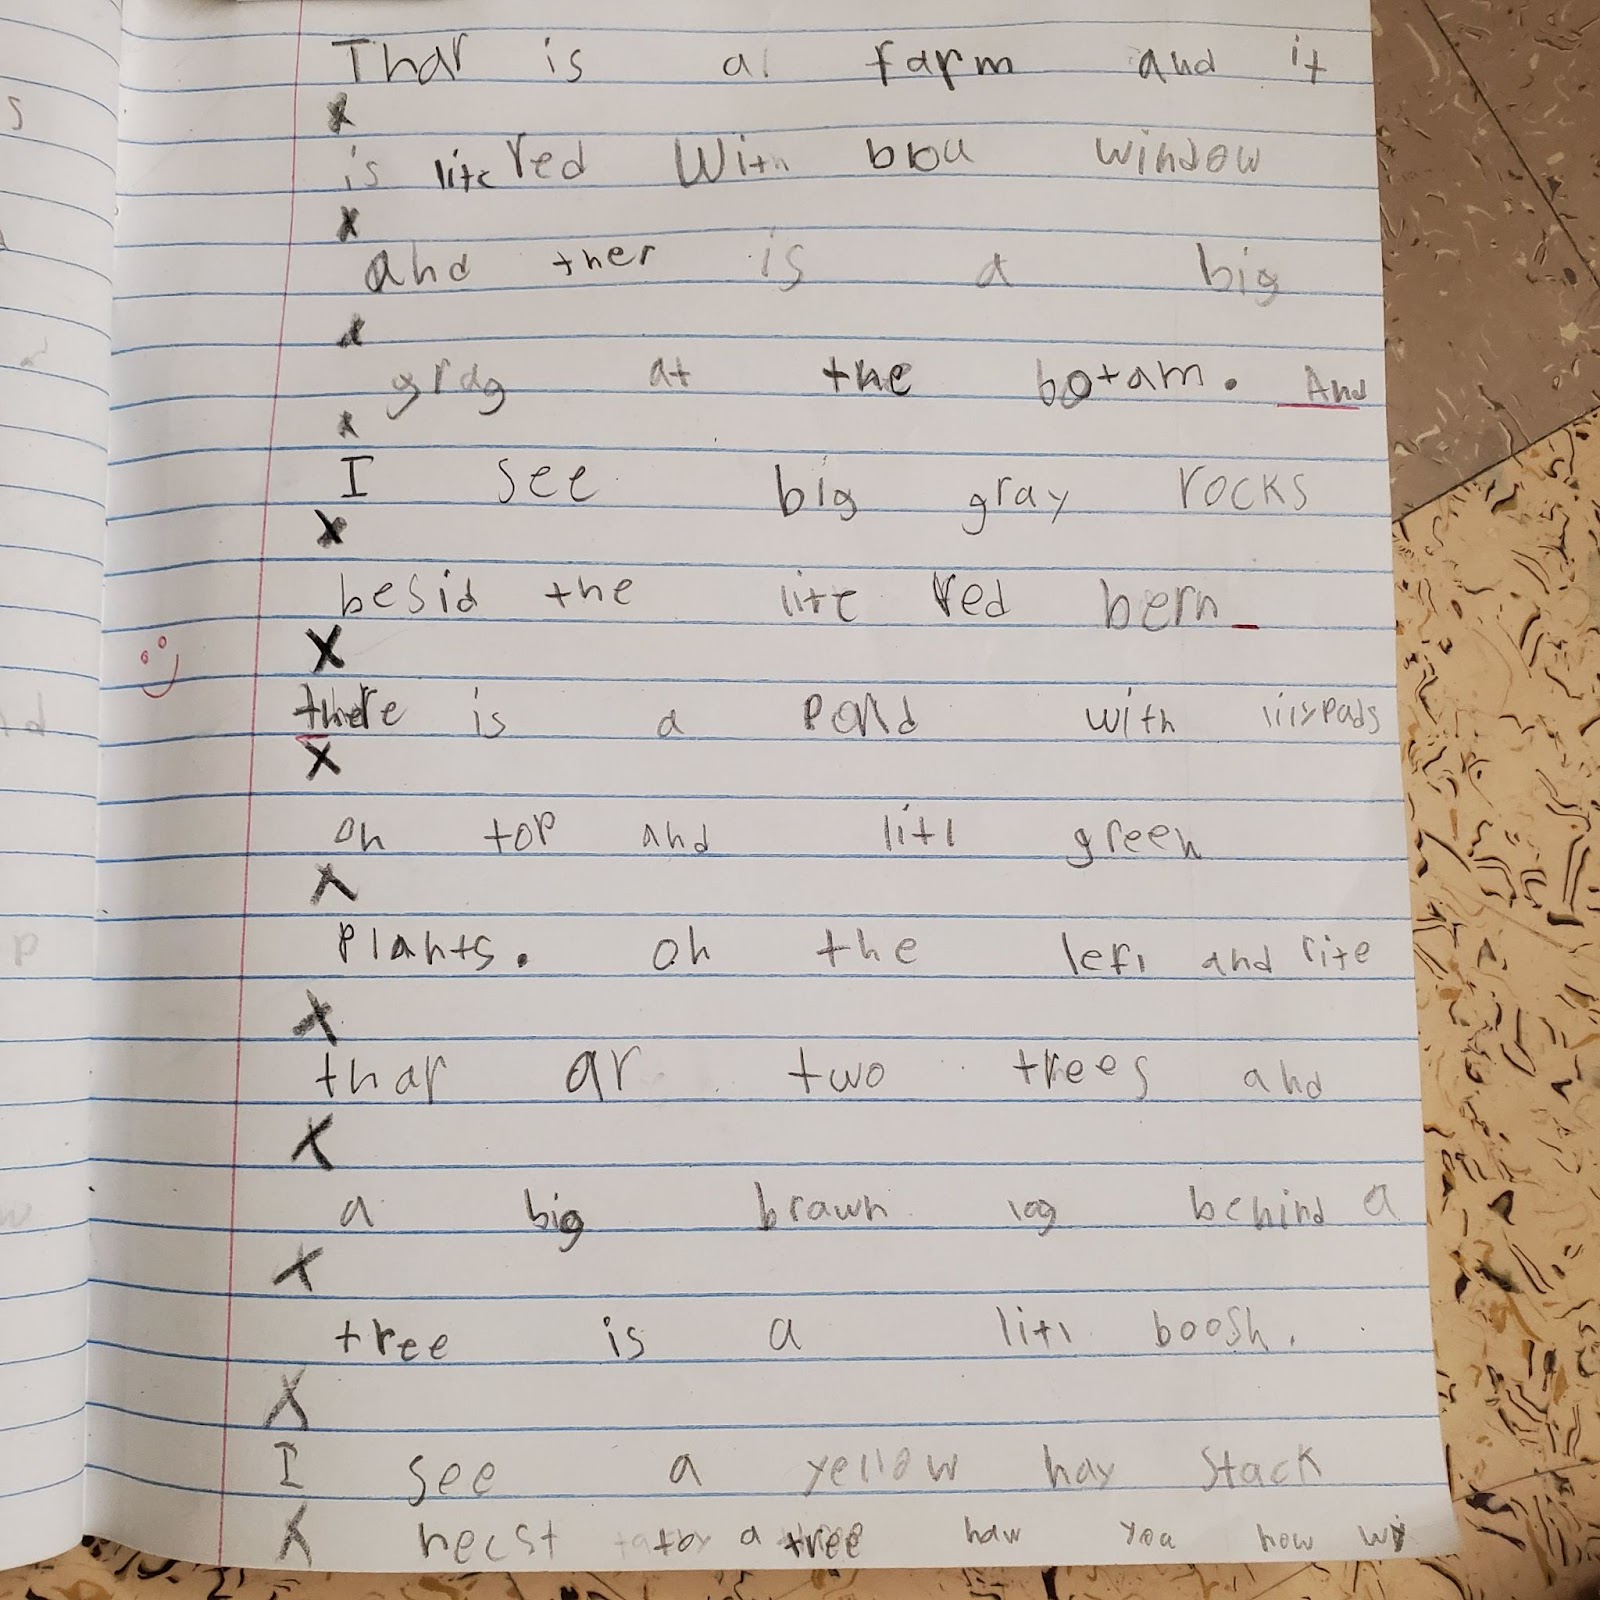 Thar is a farm and it
x
is lite red With bou window
x
and ther is a big
x
grag at the botam. And
x
I see big gray rocks
x
besid the lite red bern
X
there is a pond with lilypads
X
on top and litl green
X
Plants. on the left and rite
X
thar ar two trees and
X
a big brawn log behind a
X
tree is a litl boosh.
X
I see a yellow hay stack
X necst to a tree haw you now wi